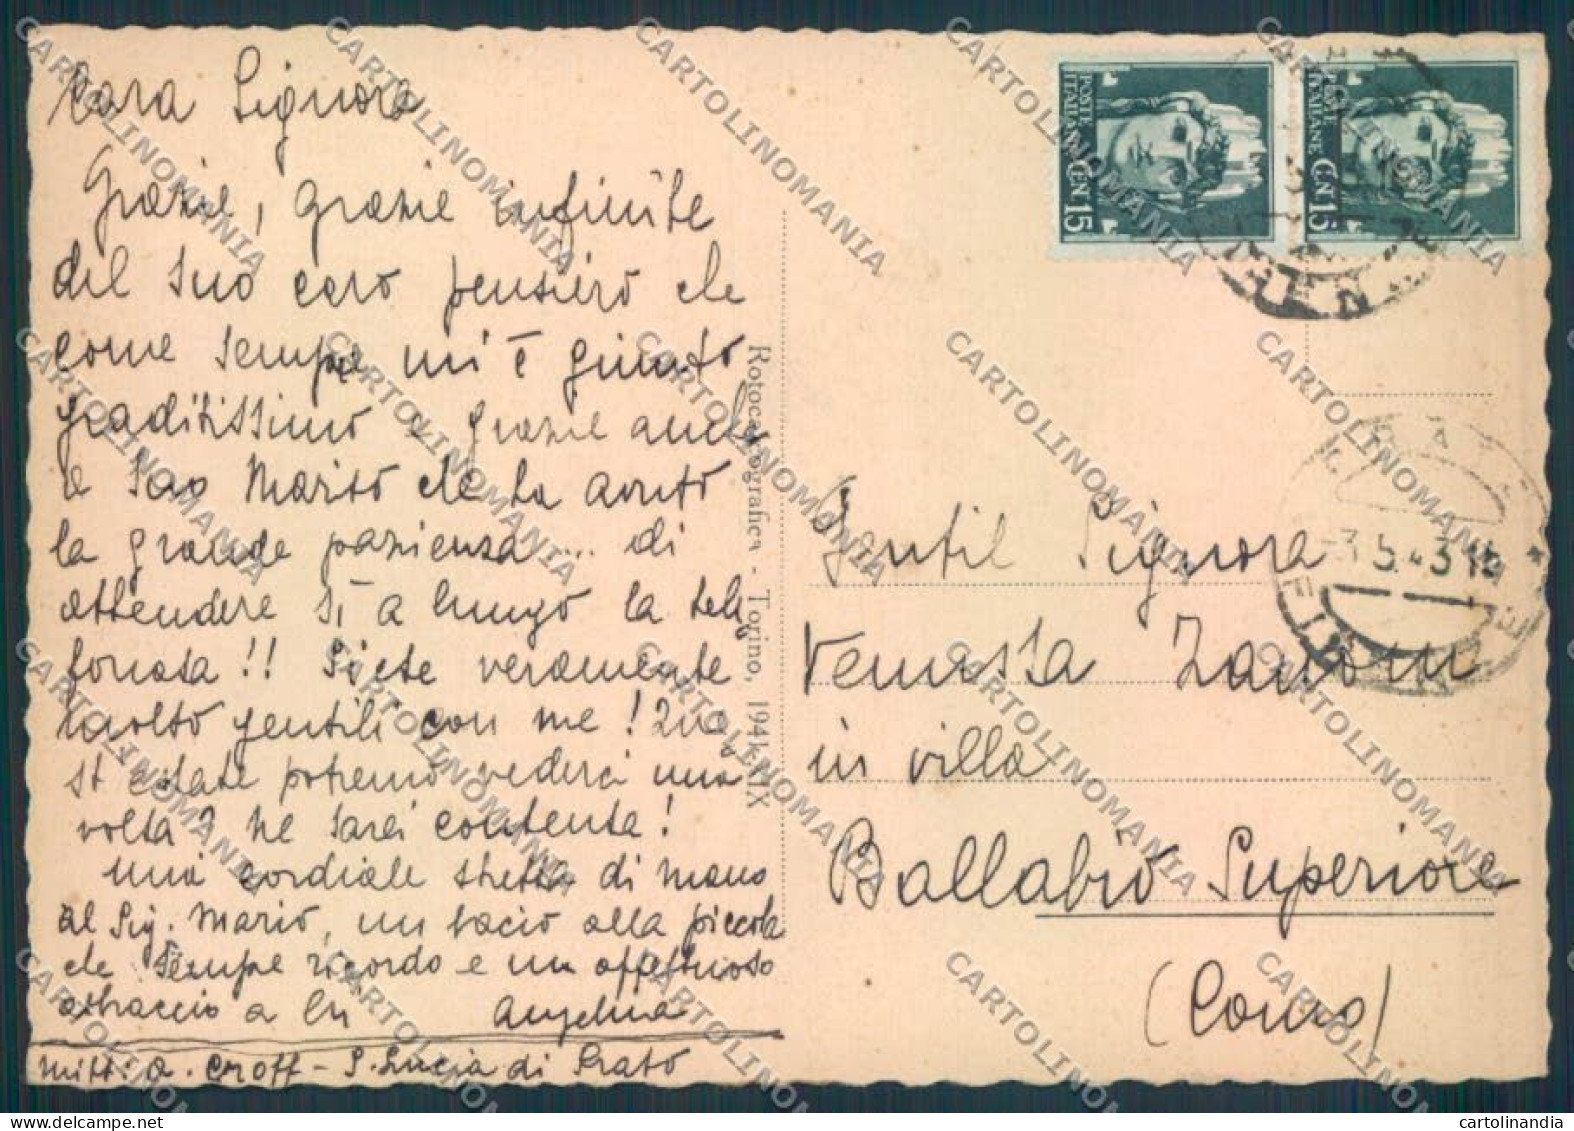 Cara Signora
Grazie, grazie infinite
del Suo caro pensiero che
come sempre mi è giunto
graditissimo e grazie anche
a Suo Marito che ha avuto
la grande pazienza... di
attendere sì a lungo la tele
fonata!! Siete veramente
molto gentili con me! Que
st'estate potremo vederci una
volta? Ne sarei contenta!
Una cordiale stretta di mano
al Sig. Mario, un bacio alla piccola
che sempre ricordo e un affettuoso
abbraccio a lei Angelina
Mitt: A. Croff - S. Lucia di Prato
Rotocalcografica - Torino, 1941-XIX
POSTE ITALIANE CENT 15
POSTE ITALIANE CENT 15
-3.5.43 15
Gentil Signora
Venusta Zanoni
in villa
Ballabio Superiore
(Como)
CARTOLINOMANIA
cartolinandia